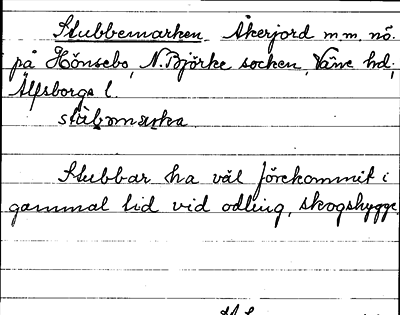 Stubbemarken Åkerjord m.m. nö.
på Hönsebo, N. Björke socken, Väne hd,
Älfsborgs l.
Stubbar ha väl förekommit i
gammal tid vid odling, skogshygge.